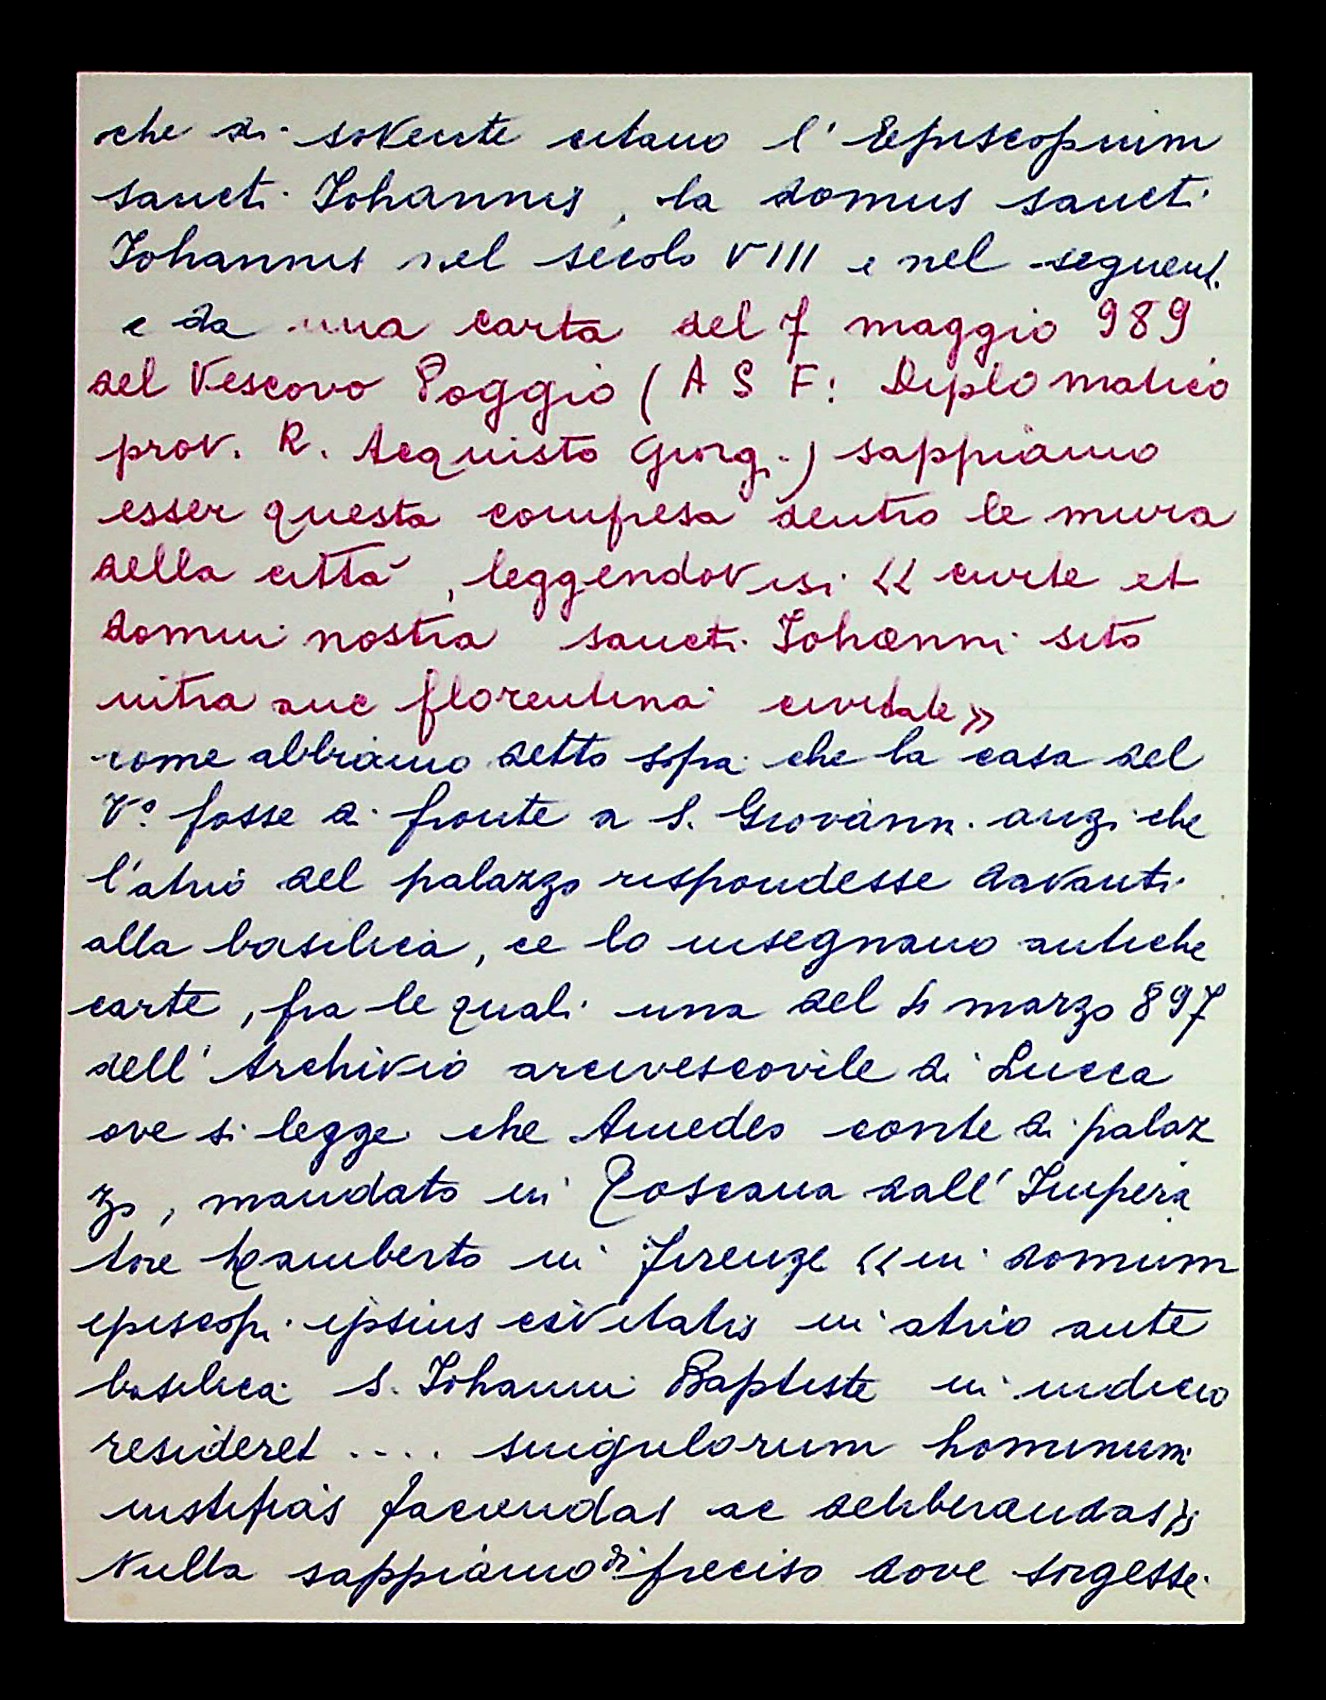 che di sovente citano l'Episcopium
sancti Iohannis, la domus sancti
Iohannis nel secolo VIII e nel seguent.
e da una carta del 7 maggio 989
del Vescovo Poggio (A S F: Diplomatico
prov. R. Acquisto Giorg.) sappiamo
esser questa compresa dentro le mura
della città, leggendovisi << curte et
domui nostra sancti Iohanni sito
intra anc florentina civitate >>
come abbiamo detto sopra che la casa del
Vo. fosse di fronte a S. Giovanni anzi che
l'atrio del palazzo rispondesse davanti
alla basilica, ce lo insegnano antiche
carte, fra le quali una del 4 marzo 897
dell'Archivio arcivescovile di Lucca
ove si legge che Amedeo conte di palaz
zo, mandato in Toscana dall'Impera
tore Lamberto in Firenze << in domum
episcopi ipsius civitatis in atrio ante
basilica S. Iohanni Baptiste in iudicio
resideret .... singulorum hominum
iustitias faciendas ac deliberandas >>
Nulla sappiamo di preciso dove sorgesse